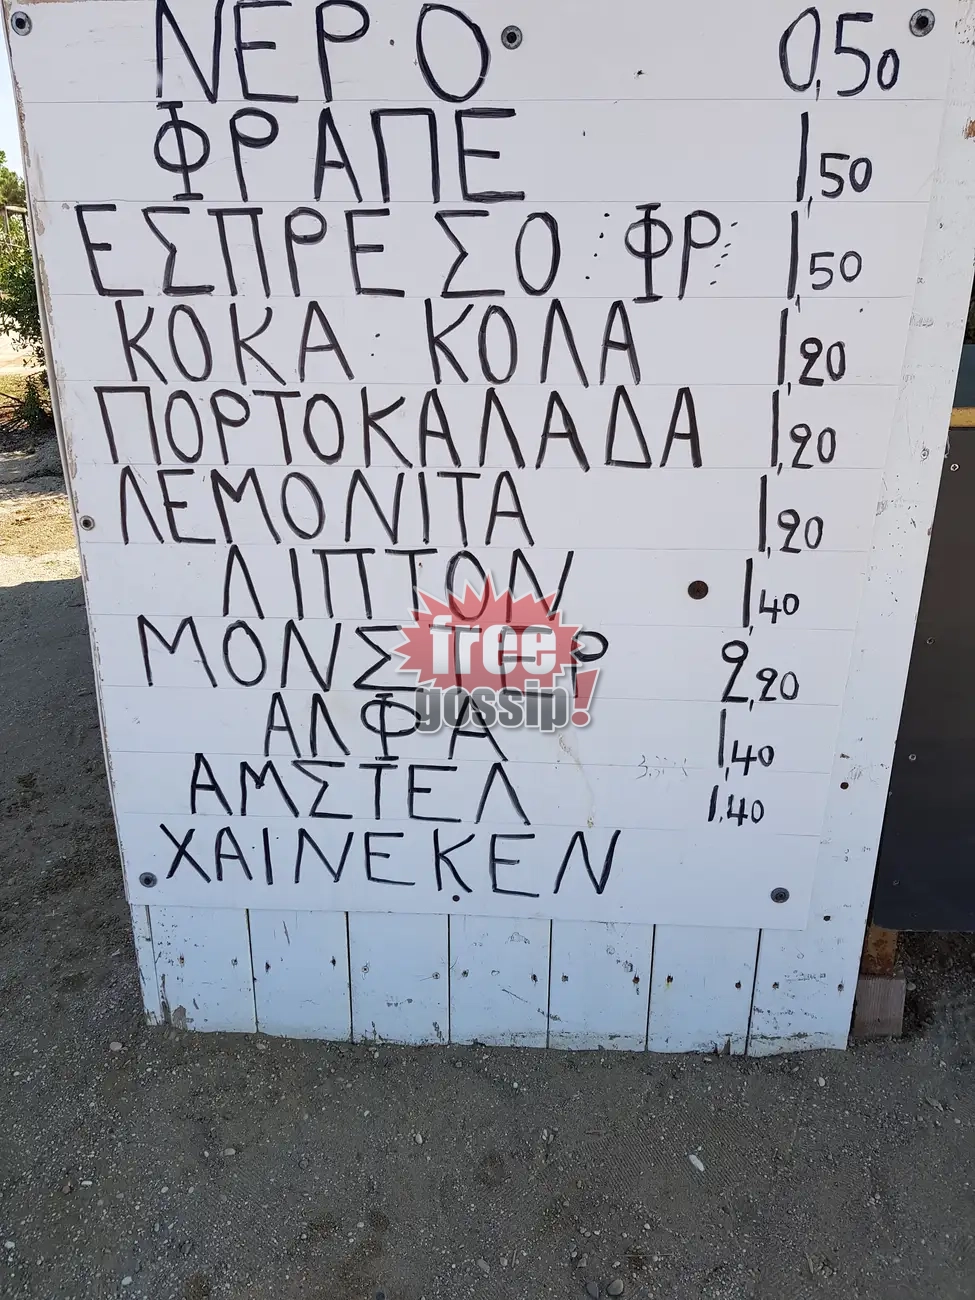 ΝΕΡΟ 0,50
ΦΡΑΠΕ 1,50
ΕΣΠΡΕΣΟ ΦΡ 1,50
ΚΟΚΑ ΚΟΛΑ 1,20
ΠΟΡΤΟΚΑΛΑΔΑ 1,20
ΛΕΜΟΝΙΤΑ 1,20
ΛΙΠΤΟΝ 1,40
ΜΟΝΣΤΕΡ 2,20
free
gossip!
ΑΛΦΑ 1,40
ΑΜΣΤΕΛ 1,40
ΧΑΙΝΕΚΕΝ